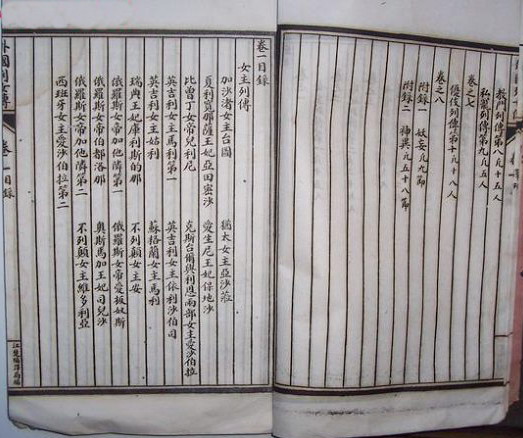 教門列傳第八凡十五人
私寵列傳第九凡五人
卷之七
優伎列傳第十凡十八人
卷之八
附錄一 妖妄凡九節
附錄二 神異凡五十八節
卷一目錄
女主列傳
加沙渚女主台國 猶太女主亞沙菈
貝利寬那薩王妃亞田蜜沙 愛生尼王妃保地沙
比曾丁女帝兒利尼 克斯台爾與利恩兩部女主愛沙伯拉
英吉利女主馬利第一 英吉利女主依利沙伯
英吉利女主姑利 蘇格蘭女主馬利
瑞典王妃庫利斯的那 不列顛女主安
俄羅斯女帝加他隣第一 俄羅斯女帝愛扳奴斯
俄羅斯女帝伯都洛那 奧斯馬加王妃司兒沙
俄羅斯女帝加他隣第二 不列顛女主維多利亞
西班牙女主愛沙伯拉第二
外國列女傳 卷一目錄 江楚編譯局